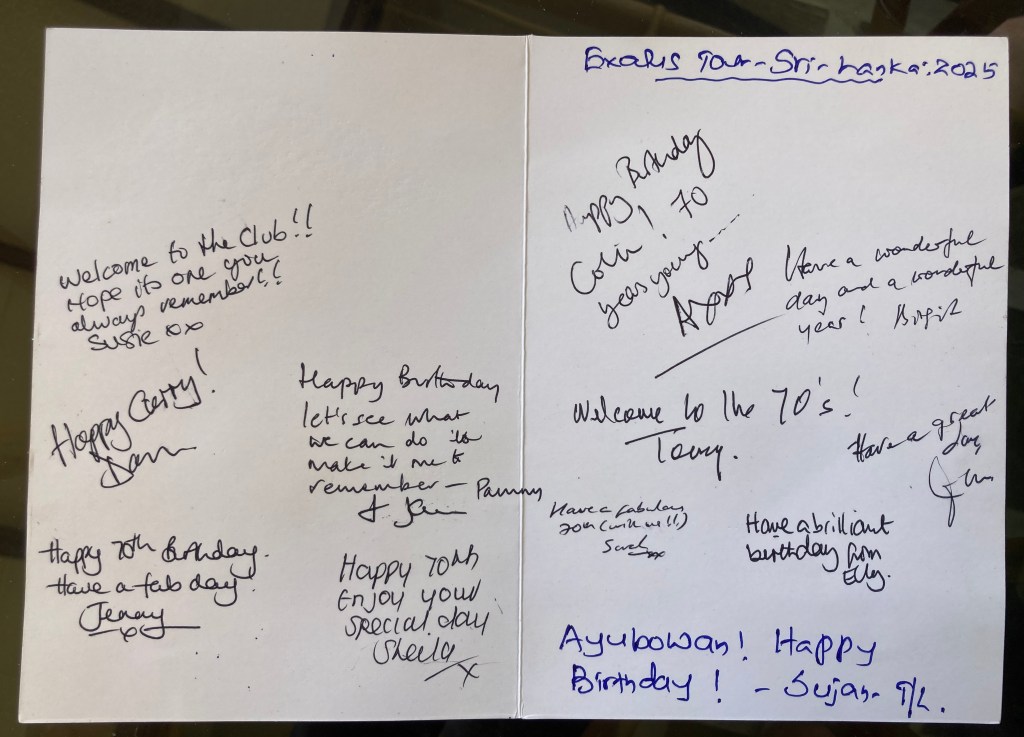 Welcome to the Club!!
Hope its one you
always remember!!
Susie xox
Happy
Happy Birthday
let's see what
we can do to
make it one to
remember – Pammy
Happy 70th Birthday.
Have a fab day.
Jenny
x
Happy 70th
Enjoy your
special day
Sheila
x
Tour - Sri-Lanka. 2025
Happy Birthday
Colin, 70
years young----
Have a wonderful
day and a wonderful
year! Birgit
Welcome to the 70's!
Terry.
Have a great
day
Have a fabulous
70th (with us!!)
Sarah xx
Have a brilliant
birthday from
Elly.
Ayubowan! Happy
Birthday! - Sujan - T/L.